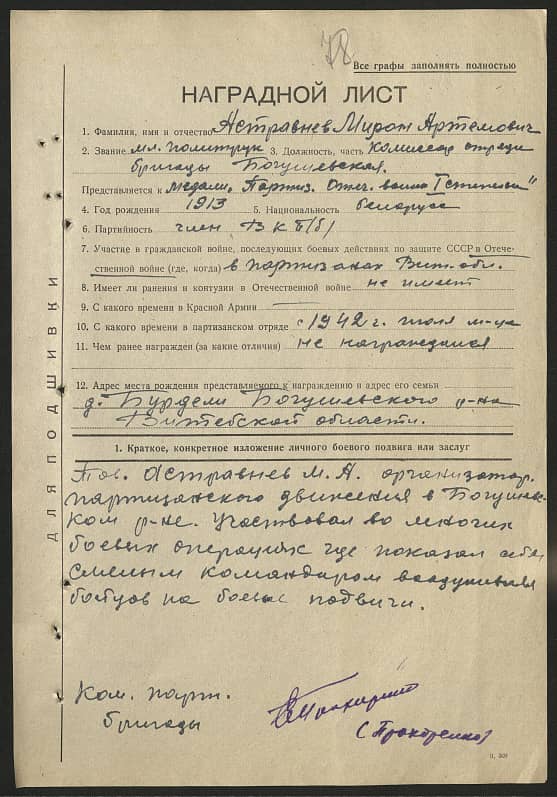 78
Все графы заполнять полностью
НАГРАДНОЙ ЛИСТ
1. Фамилия, имя и отчество Астравнев Мирон Артемович
2. Звание мл. политрук 3. Должность, часть Комиссар отряда
бригады Богушевская.
Представляется к медали „Партиз. Отеч. войны I степени"
4. Год рождения 1913 5. Национальность белорусс
6. Партийность член ВКП/б/
7. Участие в гражданской войне, последующих боевых действиях по защите СССР в Отече-
ственной войне (где, когда) в партизанах Вит. обл.
8. Имеет ли ранения и контузии в Отечественной войне не имеет
9. С какого времени в Красной Армии
10. С какого времени в партизанском отряде с 1942 г. июля м-ца
11. Чем ранее награжден (за какие отличия) не награждался
12. Адрес места рождения представляемого к награждению и адрес его семьи
д. Бурдели Богушевского р-на
Витебской области.
1. Краткое, конкретное изложение личного боевого подвига или заслуг
Тов. Астравнев М. А. организатор.
партизанского движения в Богушевс-
ком р-не. Участвовал во многих
боевых операциях где показал себя
смелым командиром воодушевляя
бойцов на боевые подвиги.
Ком. парт.
бригады
ДЛЯ ПОДШИВКИ